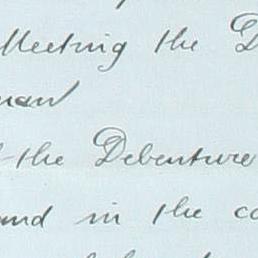 Meeting the D
man
the Debenture
and in the co